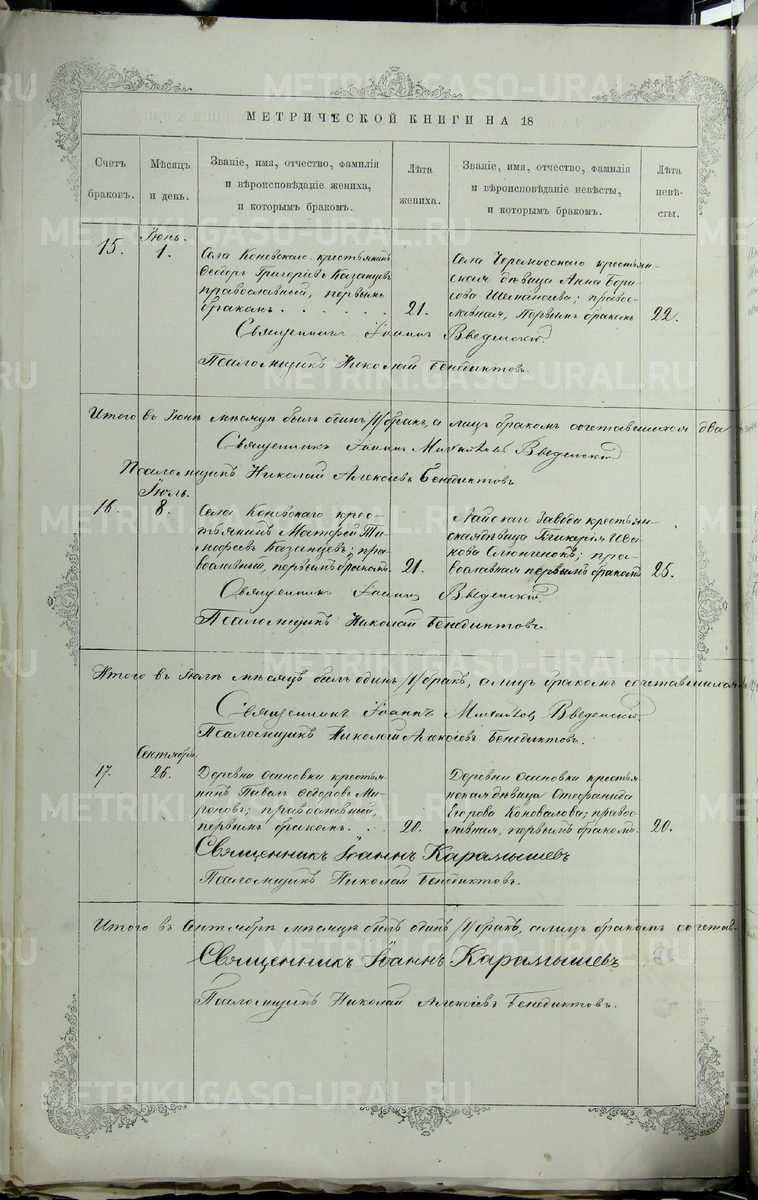 МЕТРИЧЕСКОЙ КНИГИ НА 18
Счетъ браковъ.
Мѣсяцъ и день.
Званіе, имя, отчество, фамилія
и вѣроисповѣданіе жениха,
и которымъ бракомъ.
Лѣта жениха.
Званіе, имя, отчество, фамилія
и вѣроисповѣданіе невѣсты,
и которымъ бракомъ.
Лѣта невѣ-
сты.
15.
Іюнь.
1.
Села Коневскаго крестьянинъ
Ѳеодоръ Григоріевъ Казанцевъ
православный, первымъ
бракомъ . . . . . .
21.
Села крестьян-
ская дѣвица Анна Бори-
сова правос-
лавная, первымъ бракомъ
22.
Священникъ Іоаннъ Введенскій
Псаломщикъ Николай Бенедиктовъ.
Итого въ Іюнѣ мѣсяцѣ былъ одинъ /1/ бракъ, а лицъ бракомъ сочетавшихся два
Священникъ Іоаннъ Михайловъ Введенскій
Псаломщикъ Николай Алексіевъ Бенедиктовъ
16.
Іюль.
8.
Села Коневскаго крес-
тьянинъ Матфей Ти-
мофеевъ Казанцевъ; пра-
вославный, первымъ бракомъ.
21.
Завода крестьян-
ская дѣвица Гликерія Ива-
нова пра-
вославная первымъ бракомъ
25.
Священникъ Іоаннъ Введенскій.
Псаломщикъ Николай Бенедиктовъ.
Итого въ Іюлѣ мѣсяцѣ былъ одинъ /1/ бракъ, а лицъ бракомъ сочетавшихся
Священникъ Іоаннъ Михайловъ Введенскій
Псаломщикъ Николай Алексіевъ Бенедиктовъ.
17.
Сентябрь.
26.
Деревни Осиновки крестья-
нинъ Павелъ Ѳедоровъ Ми-
роновъ; православный,
первымъ бракомъ. . . .
20.
Деревни Осиновки крестья
нская дѣвица Стефанида
Егорова Коновалова; правос-
лавная, первымъ бракомъ.
20.
Священникъ Іоаннъ Карамышевъ
Псаломщикъ Николай Бенедиктовъ.
Итого въ Сентябрѣ мѣсяцѣ былъ одинъ /1/ бракъ, а лицъ бракомъ сочетав-
Священникъ Іоаннъ Карамышевъ
Псаломщикъ Николай Алексіевъ Бенедиктовъ.
METRIKI.GASO-URAL.RU